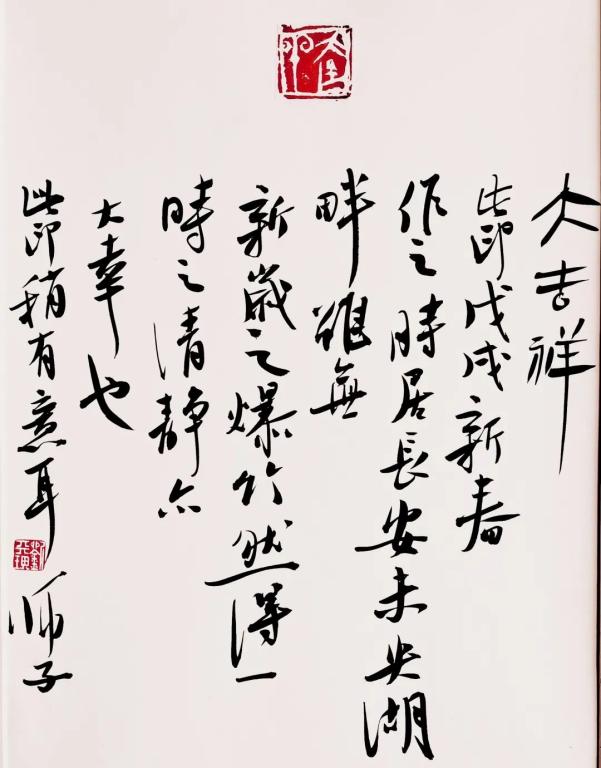 大吉祥
此印戊戌新春
作之時居長安未央湖
畔雖無
新歲之爆竹然得一
時之清靜亦
大幸也
此印稍有意耳
師子